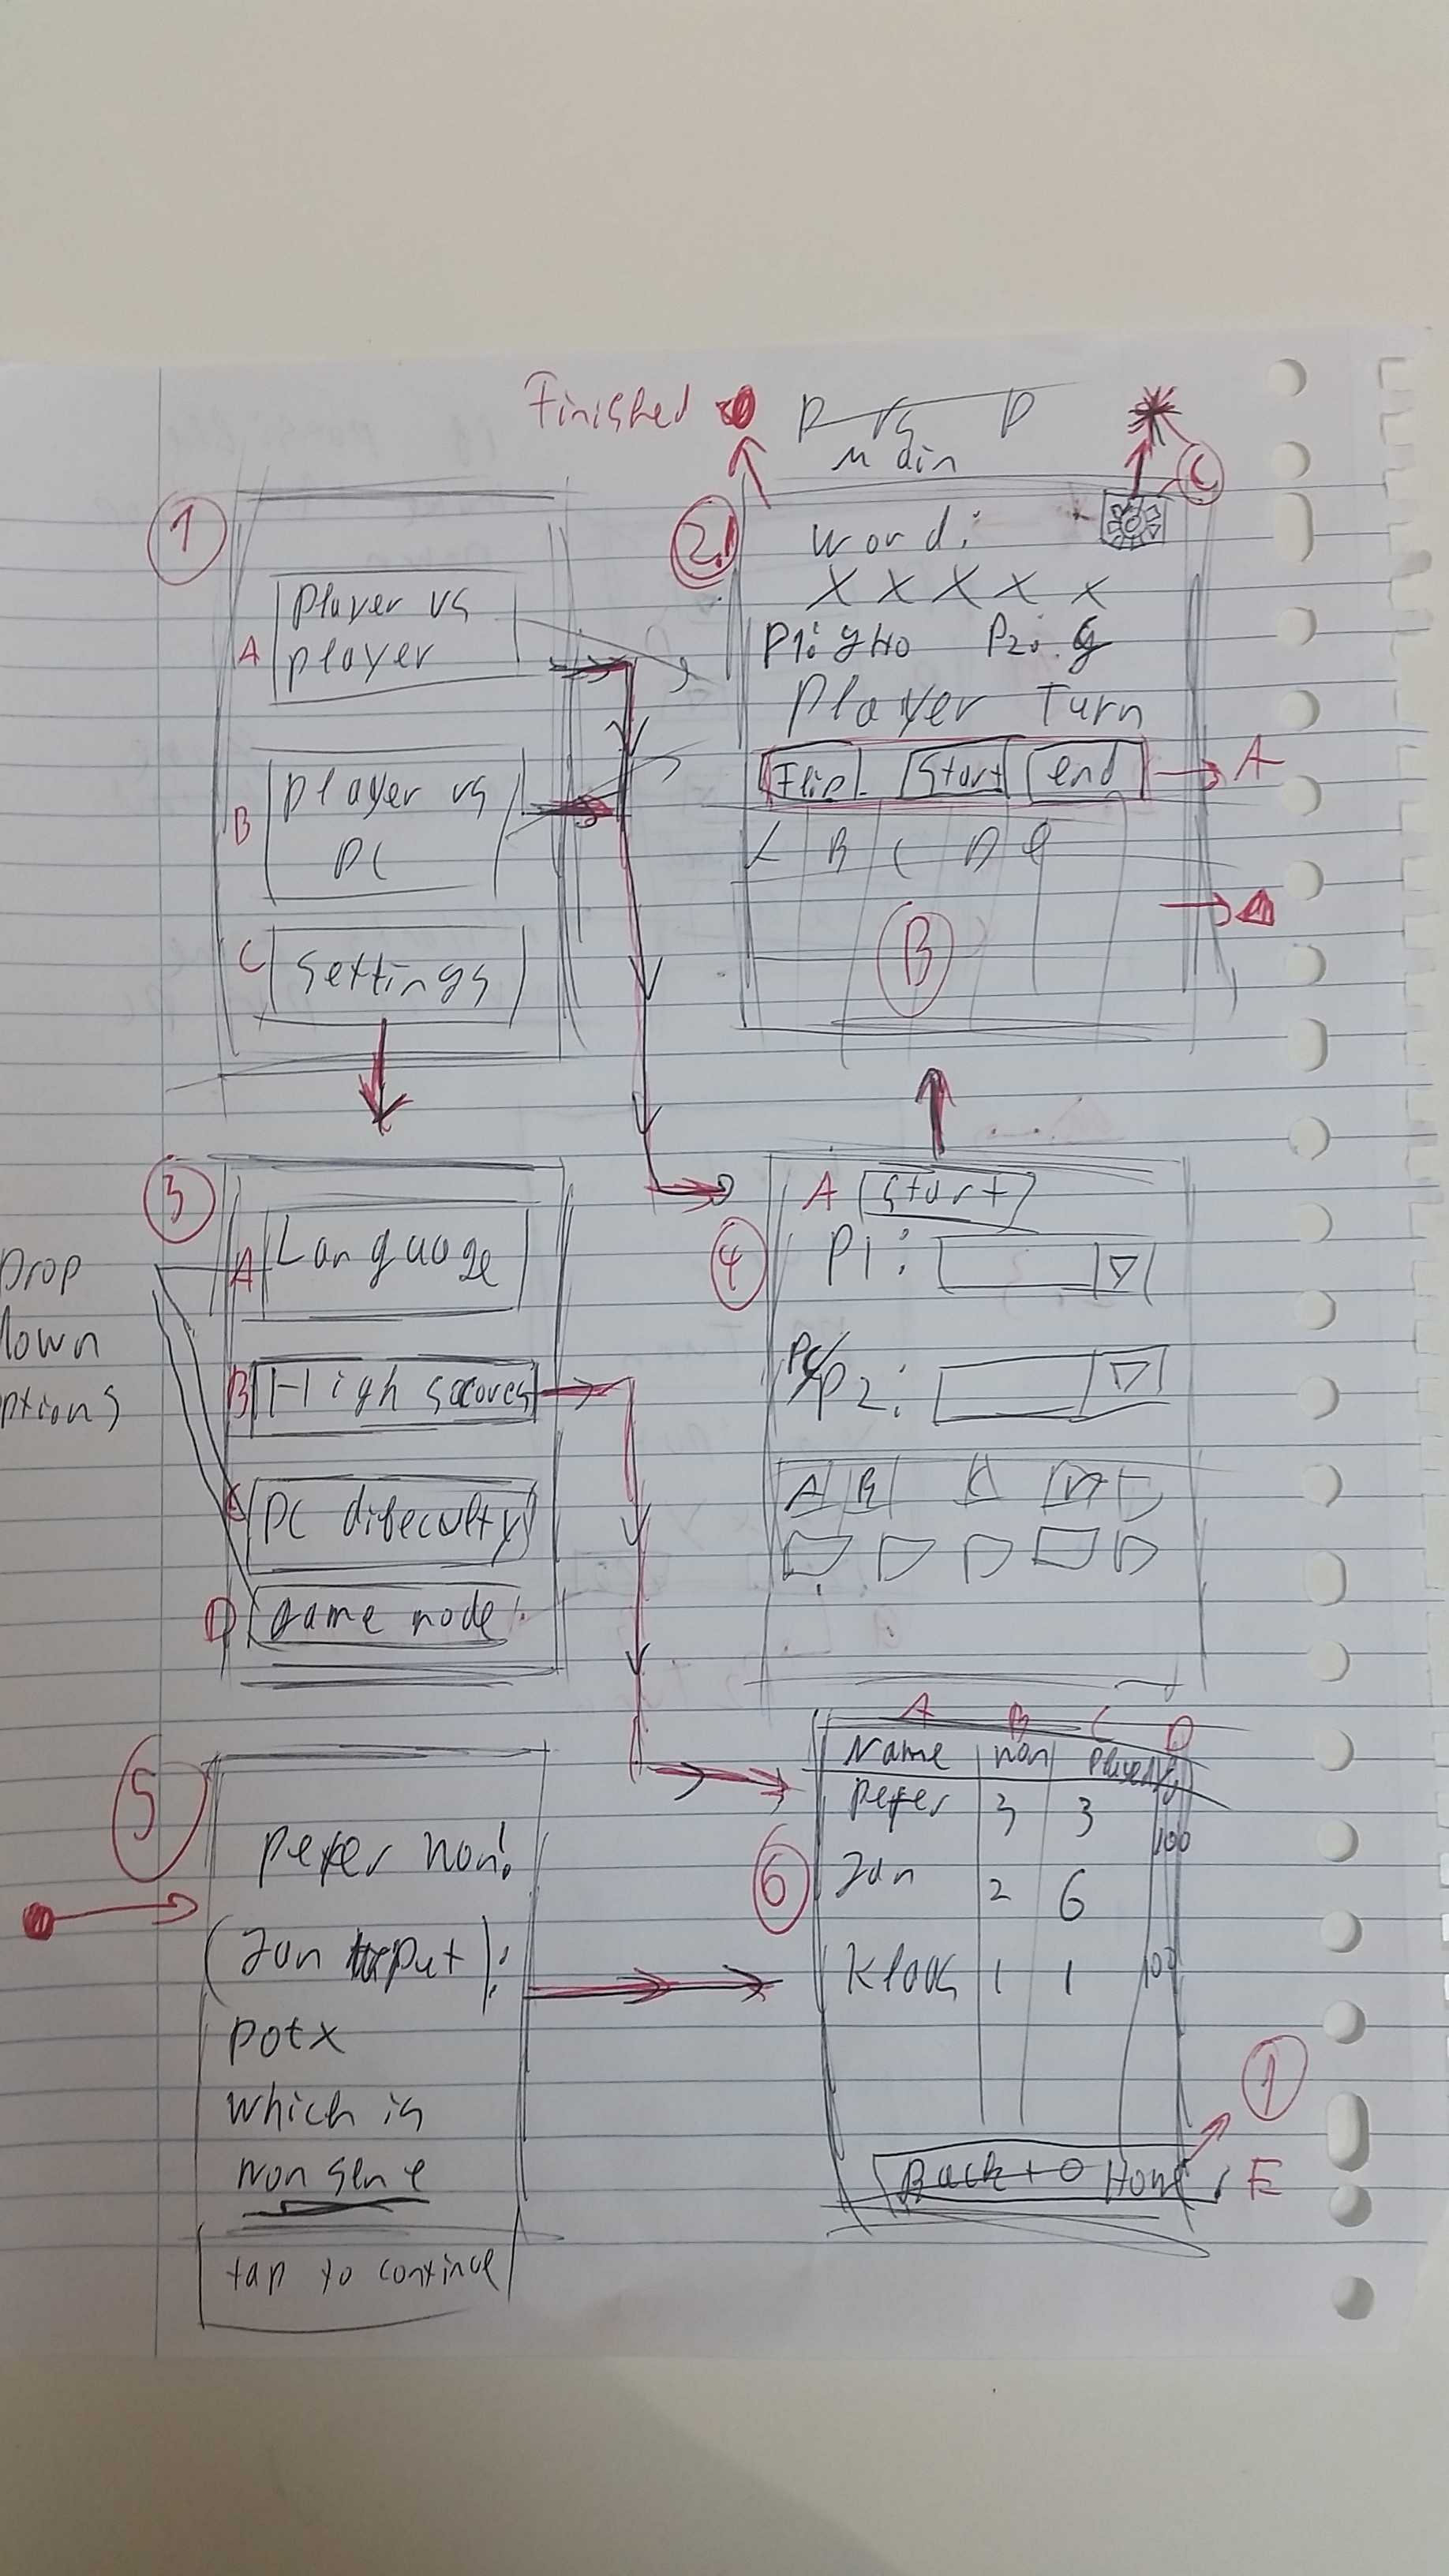 Finished
P vs P
Main
1
A
player vs
player
B
player vs
PC
C
settings
2.1
C
word:
X X X X X
P1: gHo P2: g
Player Turn
Flip Start end
A
B C D e
B
3
Drop
down
ptions
A
Language
B
High scores
C
PC difeculty
D
game mode
4
A
Start
P1:
PC/P2:
A B C D E
5
peter won!
(Jan put):
potx
which is
nonsene
tap to continue
6
A B C D
Name won played
peter 3 3 100
Jan 2 6
Klaas 1 1 100
Back to Home
1
E